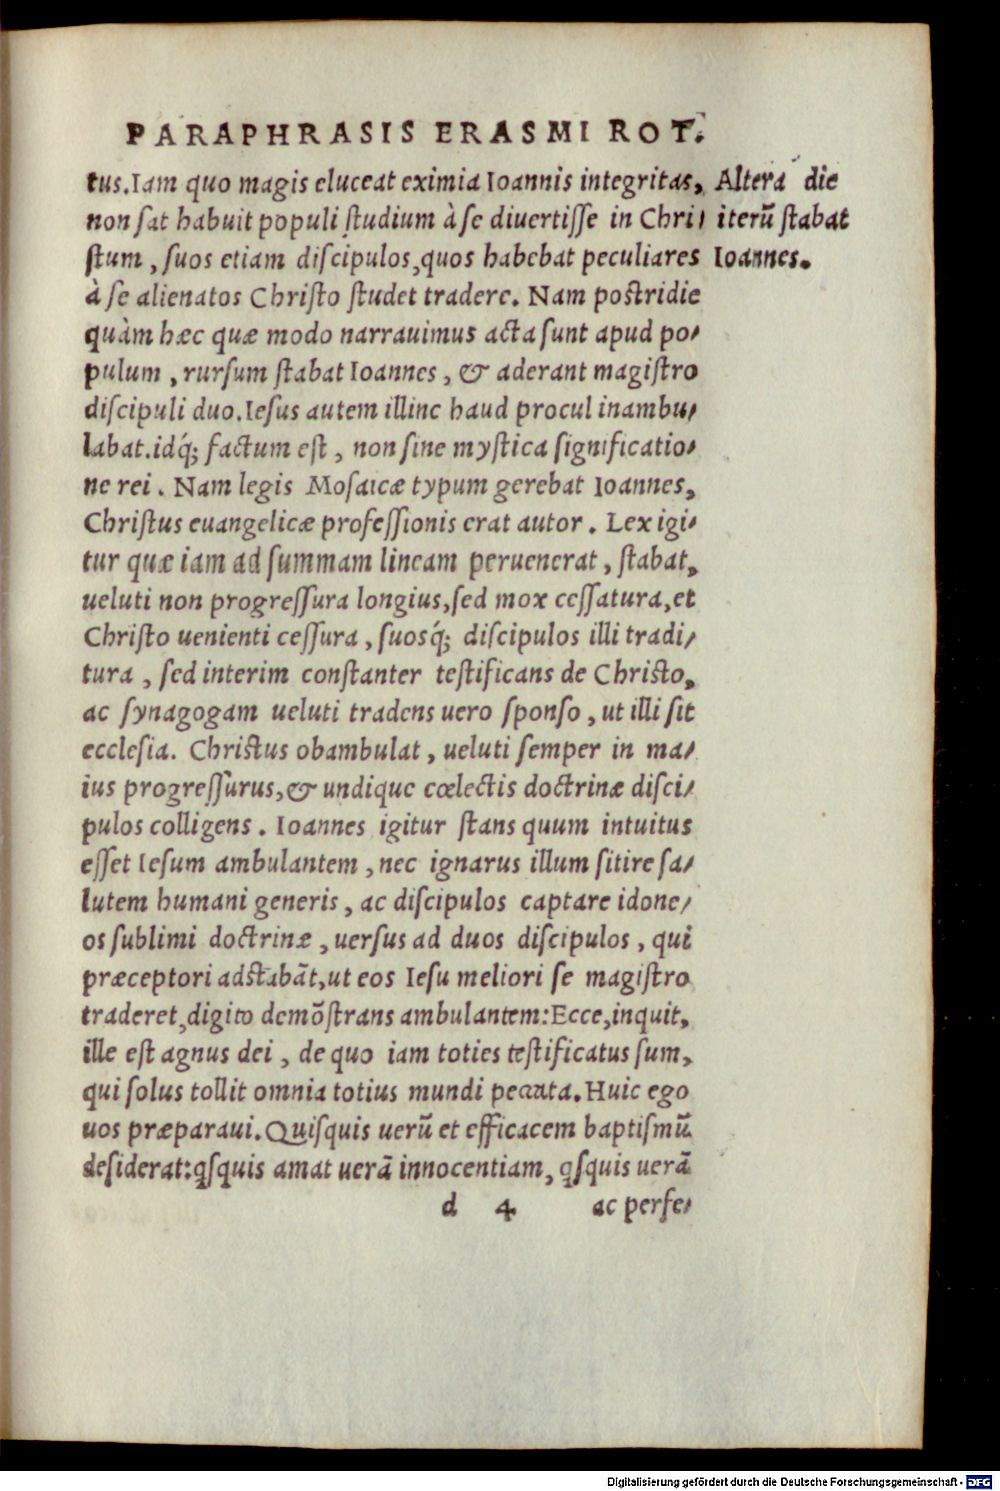 PARAPHRASIS ERASMI ROT.
tus. Iam quo magis eluceat eximia Ioannis integritas,
non sat habuit populi studium à se diuertisse in Chri/
stum, suos etiam discipulos, quos habebat peculiares
à se alienatos Christo studet tradere. Nam postridie
quàm hæc quæ modo narrauimus acta sunt apud po/
pulum, rursum stabat Ioannes, & aderant magistro
discipuli duo. Iesus autem illinc haud procul inambu/
labat. idq́; factum est, non sine mystica significatio/
ne rei. Nam legis Mosaicæ typum gerebat Ioannes,
Christus euangelicæ professionis erat autor. Lex igi/
tur quæ iam ad summam lineam peruenerat, stabat,
ueluti non progressura longius, sed mox cessatura, et
Christo uenienti cessura, suosq́; discipulos illi tradi/
tura, sed interim constanter testificans de Christo,
ac synagogam ueluti tradens uero sponso, ut illi sit
ecclesia. Christus obambulat, ueluti semper in ma/
ius progressurus, & undique cœlectis doctrinæ disci/
pulos colligens. Ioannes igitur stans quum intuitus
esset Iesum ambulantem, nec ignarus illum sitire sa/
lutem humani generis, ac discipulos captare idone/
os sublimi doctrinæ, uersus ad duos discipulos, qui
præceptori adstabãt, ut eos Iesu meliori se magistro
traderet, digito demõstrans ambulantem: Ecce, inquit,
ille est agnus dei, de quo iam toties testificatus sum,
qui solus tollit omnia totius mundi peccata. Huic ego
uos præparaui. Quisquis uerũ et efficacem baptismũ
desiderat: qsquis amat uerã innocentiam, qsquis uerã
d 4 ac perfe/
Altera die
iterũ stabat
Ioannes.
Digitalisierung gefördert durch die Deutsche Forschungsgemeinschaft - DFG